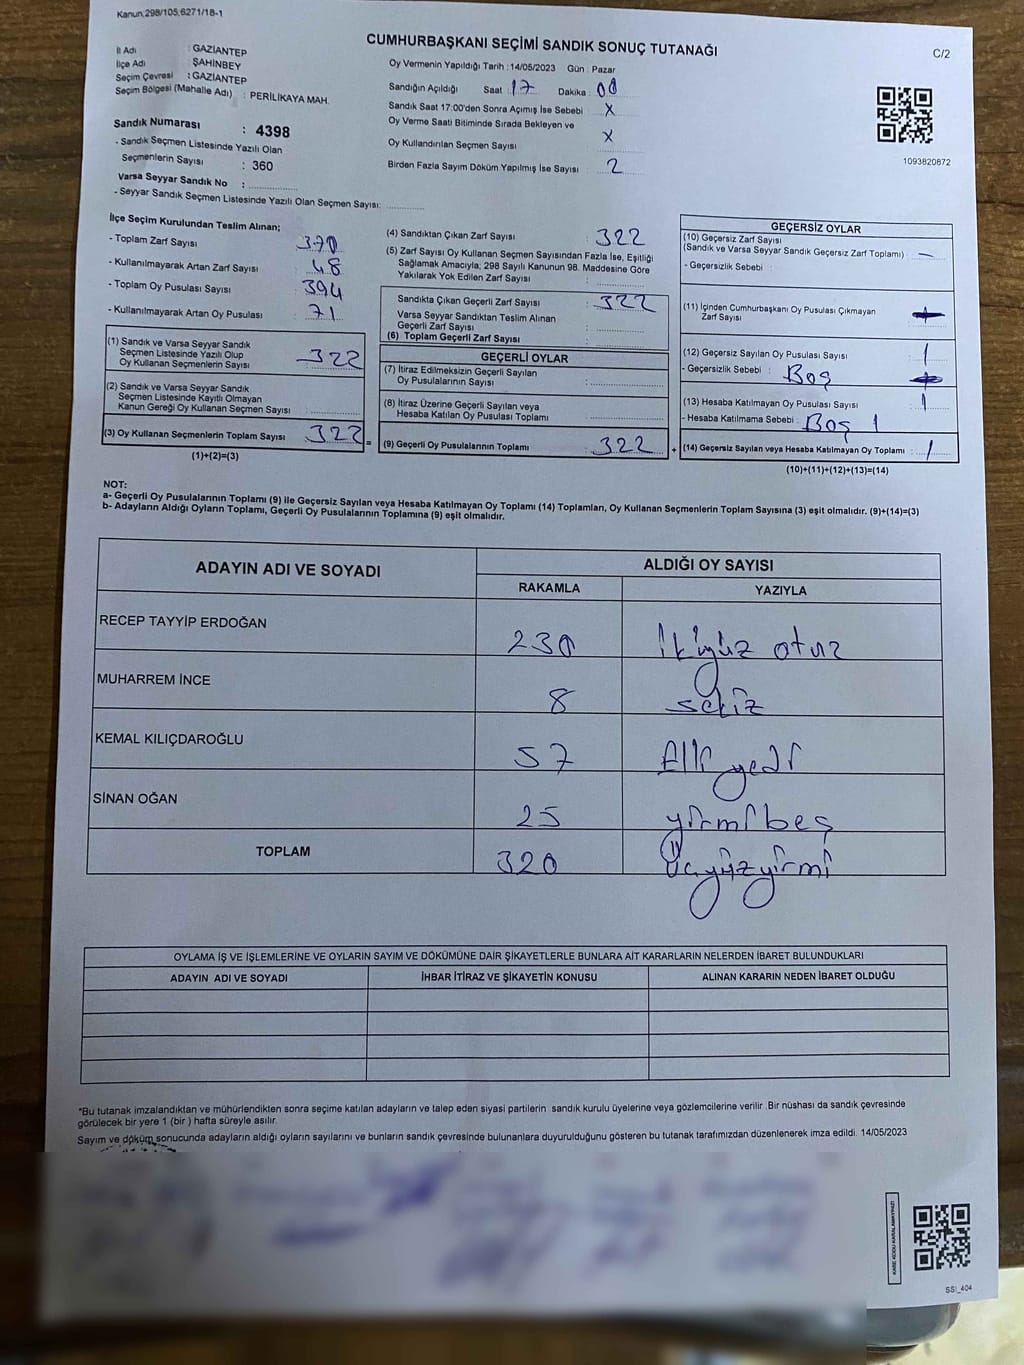 Kanun;298/105;6271/18-1
CUMHURBAŞKANI SEÇİMİ SANDIK SONUÇ TUTANAĞI
C/2
İl Adı : GAZİANTEP
İlçe Adı : ŞAHİNBEY
Seçim Çevresi : GAZİANTEP
Seçim Bölgesi (Mahalle Adı) : PERİLİKAYA MAH.
Sandık Numarası : 4398
- Sandık Seçmen Listesinde Yazılı Olan
Seçmenlerin Sayısı : 360
Varsa Seyyar Sandık No :
- Seyyar Sandık Seçmen Listesinde Yazılı Olan Seçmen Sayısı:
Oy Vermenin Yapıldığı Tarih : 14/05/2023 Gün : Pazar
Sandığın Açıldığı Saat : 17 Dakika : 00
Sandık Saat 17:00'den Sonra Açımış İse Sebebi X
Oy Verme Saati Bitiminde Sırada Bekleyen ve
Oy Kullandırılan Seçmen Sayısı X
Birden Fazla Sayım Döküm Yapılmış İse Sayısı 2
1093820872
İlçe Seçim Kurulundan Teslim Alınan;
- Toplam Zarf Sayısı : 370
- Kullanılmayarak Artan Zarf Sayısı : 48
- Toplam Oy Pusulası Sayısı : 394
- Kullanılmayarak Artan Oy Pusulası : 71
(1) Sandık ve Varsa Seyyar Sandık
Seçmen Listesinde Yazılı Olup
Oy Kullanan Seçmenlerin Sayısı : 322
(2) Sandık ve Varsa Seyyar Sandık
Seçmen Listesinde Kayıtlı Olmayan
Kanun Gereği Oy Kullanan Seçmen Sayısı :
(3) Oy Kullanan Seçmenlerin Toplam Sayısı : 322 =
(1)+(2)=(3)
(4) Sandıktan Çıkan Zarf Sayısı : 322
(5) Zarf Sayısı Oy Kullanan Seçmen Sayısından Fazla İse, Eşitliği
Sağlamak Amacıyla; 298 Sayılı Kanunun 98. Maddesine Göre
Yakılarak Yok Edilen Zarf Sayısı :
Sandıkta Çıkan Geçerli Zarf Sayısı : 322
Varsa Seyyar Sandıktan Teslim Alınan
Geçerli Zarf Sayısı :
(6) Toplam Geçerli Zarf Sayısı :
GEÇERLİ OYLAR
(7) İtiraz Edilmeksizin Geçerli Sayılan
Oy Pusulalarının Sayısı :
(8) İtiraz Üzerine Geçerli Sayılan veya
Hesaba Katılan Oy Pusulası Toplamı :
(9) Geçerli Oy Pusulalarının Toplamı : 322 +
GEÇERSİZ OYLAR
(10) Geçersiz Zarf Sayısı
(Sandık ve Varsa Seyyar Sandık Geçersiz Zarf Toplamı) : —
- Geçersizlik Sebebi :
(11) İçinden Cumhurbaşkanı Oy Pusulası Çıkmayan
Zarf Sayısı :
(12) Geçersiz Sayılan Oy Pusulası Sayısı : 1
- Geçersizlik Sebebi : Boş
(13) Hesaba Katılmayan Oy Pusulası Sayısı : 1
- Hesaba Katılmama Sebebi : Boş 1
(14) Geçersiz Sayılan veya Hesaba Katılmayan Oy Toplamı : 1
(10)+(11)+(12)+(13)=(14)
NOT:
a- Geçerli Oy Pusulalarının Toplamı (9) ile Geçersiz Sayılan veya Hesaba Katılmayan Oy Toplamı (14) Toplamları, Oy Kullanan Seçmenlerin Toplam Sayısına (3) eşit olmalıdır. (9)+(14)=(3)
b- Adayların Aldığı Oyların Toplamı, Geçerli Oy Pusulalarının Toplamına (9) eşit olmalıdır.
ADAYIN ADI VE SOYADI
ALDIĞI OY SAYISI
RAKAMLA YAZIYLA
RECEP TAYYİP ERDOĞAN 230 İkiyüz otuz
MUHARREM İNCE 8 sekiz
KEMAL KILIÇDAROĞLU 57 Elli yedi
SİNAN OĞAN 25 yirmibeş
TOPLAM 320 Üçyüzyirmi
OYLAMA İŞ VE İŞLEMLERİNE VE OYLARIN SAYIM VE DÖKÜMÜNE DAİR ŞİKAYETLERLE BUNLARA AİT KARARLARIN NELERDEN İBARET BULUNDUKLARI
ADAYIN ADI VE SOYADI İHBAR İTİRAZ VE ŞİKAYETİN KONUSU ALINAN KARARIN NEDEN İBARET OLDUĞU
*Bu tutanak imzalandıktan ve mühürlendikten sonra seçime katılan adayların ve talep eden siyasi partilerin sandık kurulu üyelerine veya gözlemcilerine verilir. Bir nüshası da sandık çevresinde
görülecek bir yere 1 (bir) hafta süreyle asılır.
Sayım ve döküm sonucunda adayların aldığı oyların sayılarını ve bunların sandık çevresinde bulunanlara duyurulduğunu gösteren bu tutanak tarafımızdan düzenlenerek imza edildi. 14/05/2023
KARE KODU KARALAMAYINIZ!
SSI_404